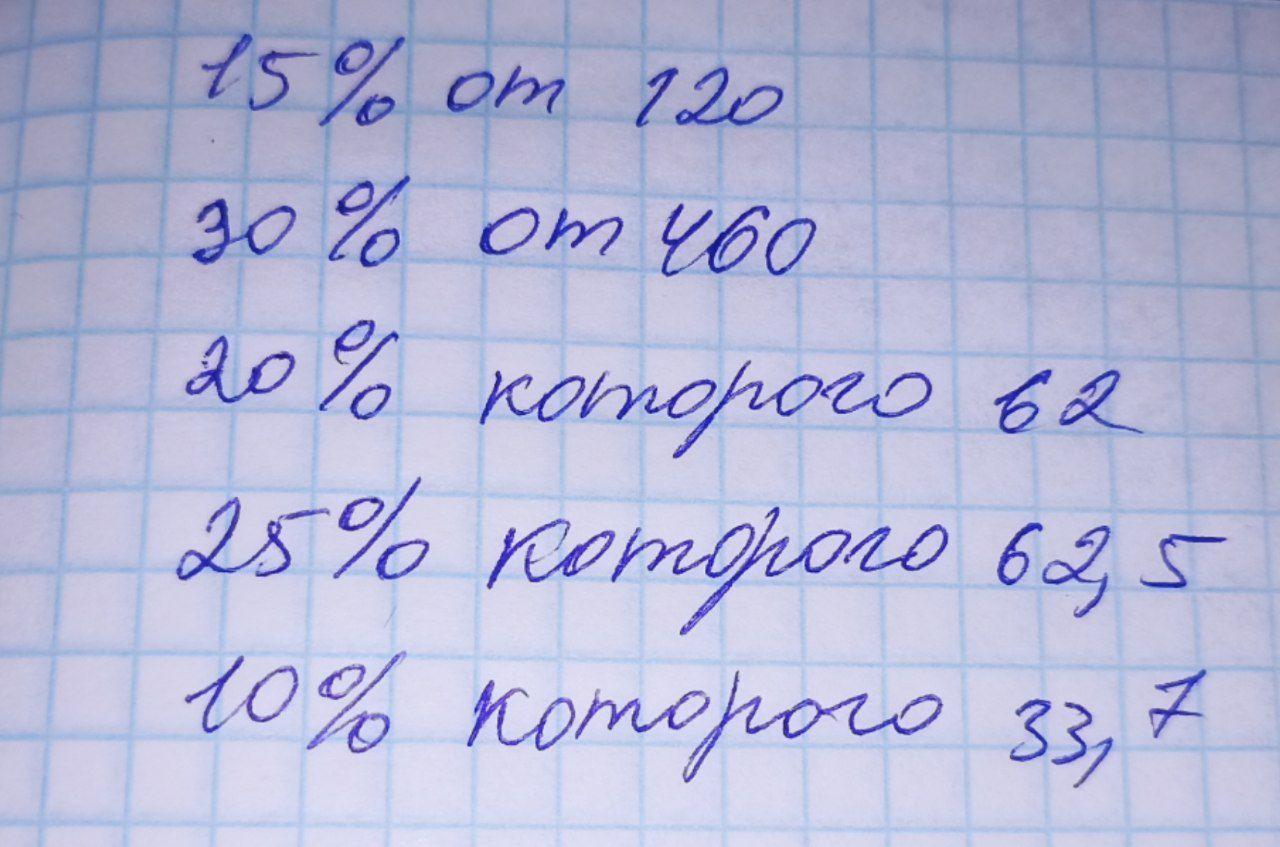 15% от 120
30% от 460
20% которого 62
25% которого 62,5
10% которого 33,7